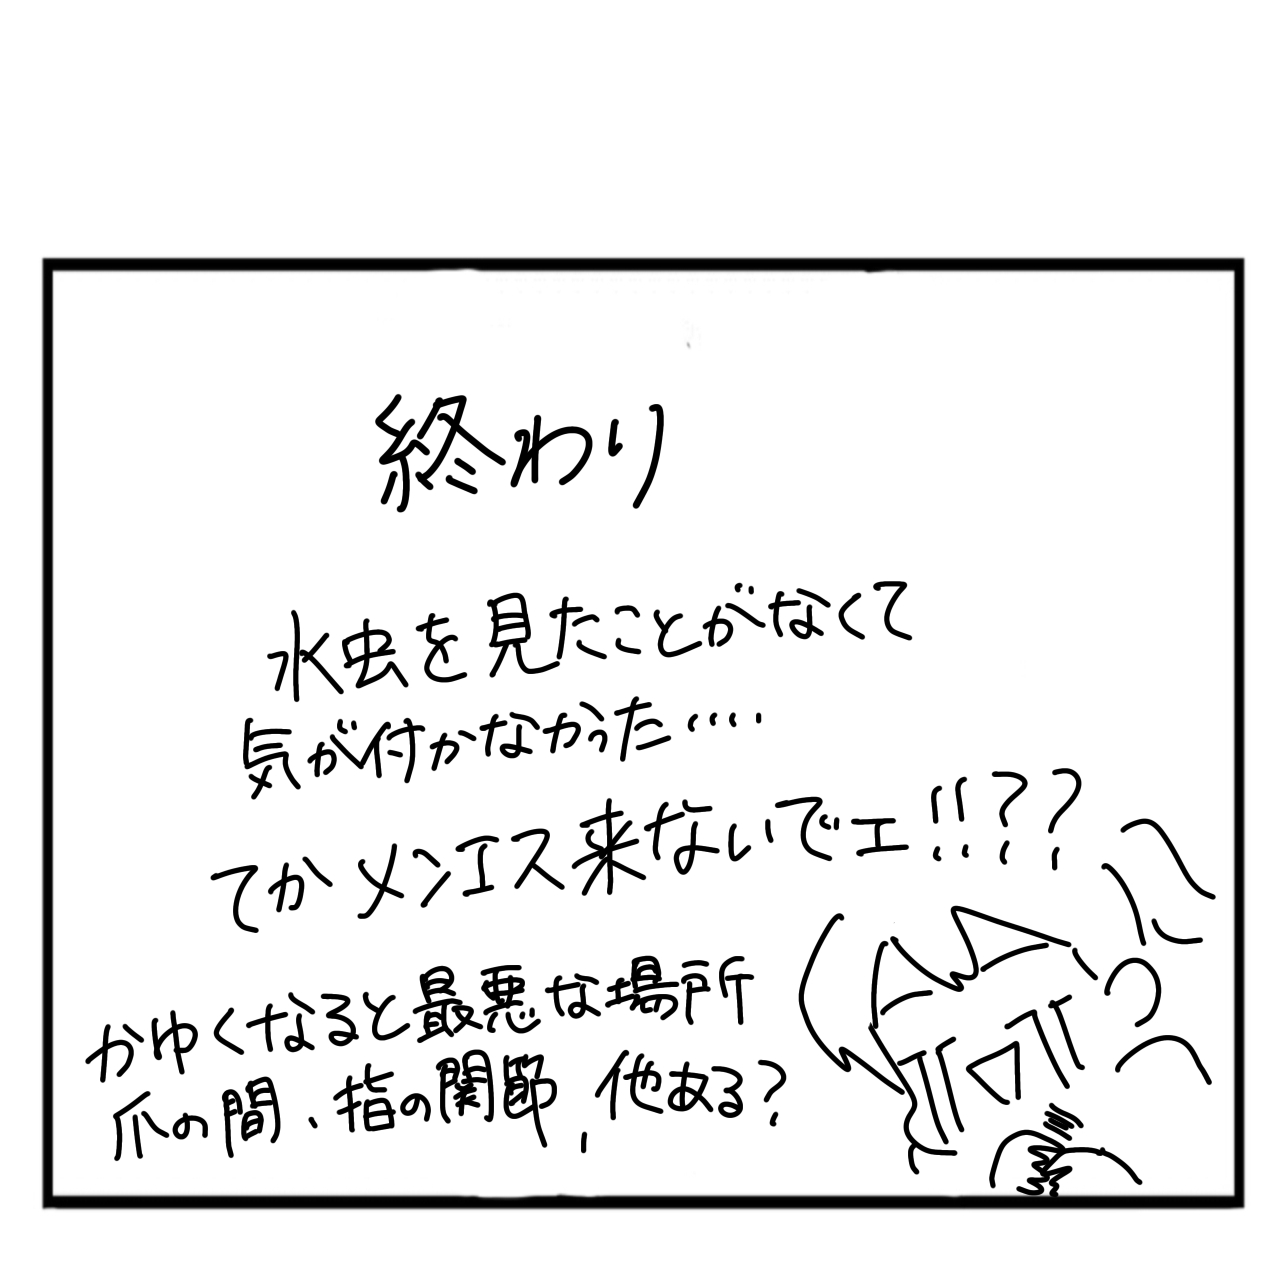 終わり
水虫を見たことがなくて
気が付かなかった‥‥
てかメンエス来ないでェ!!??
かゆくなると最悪な場所
爪の間、指の関節、他ある?